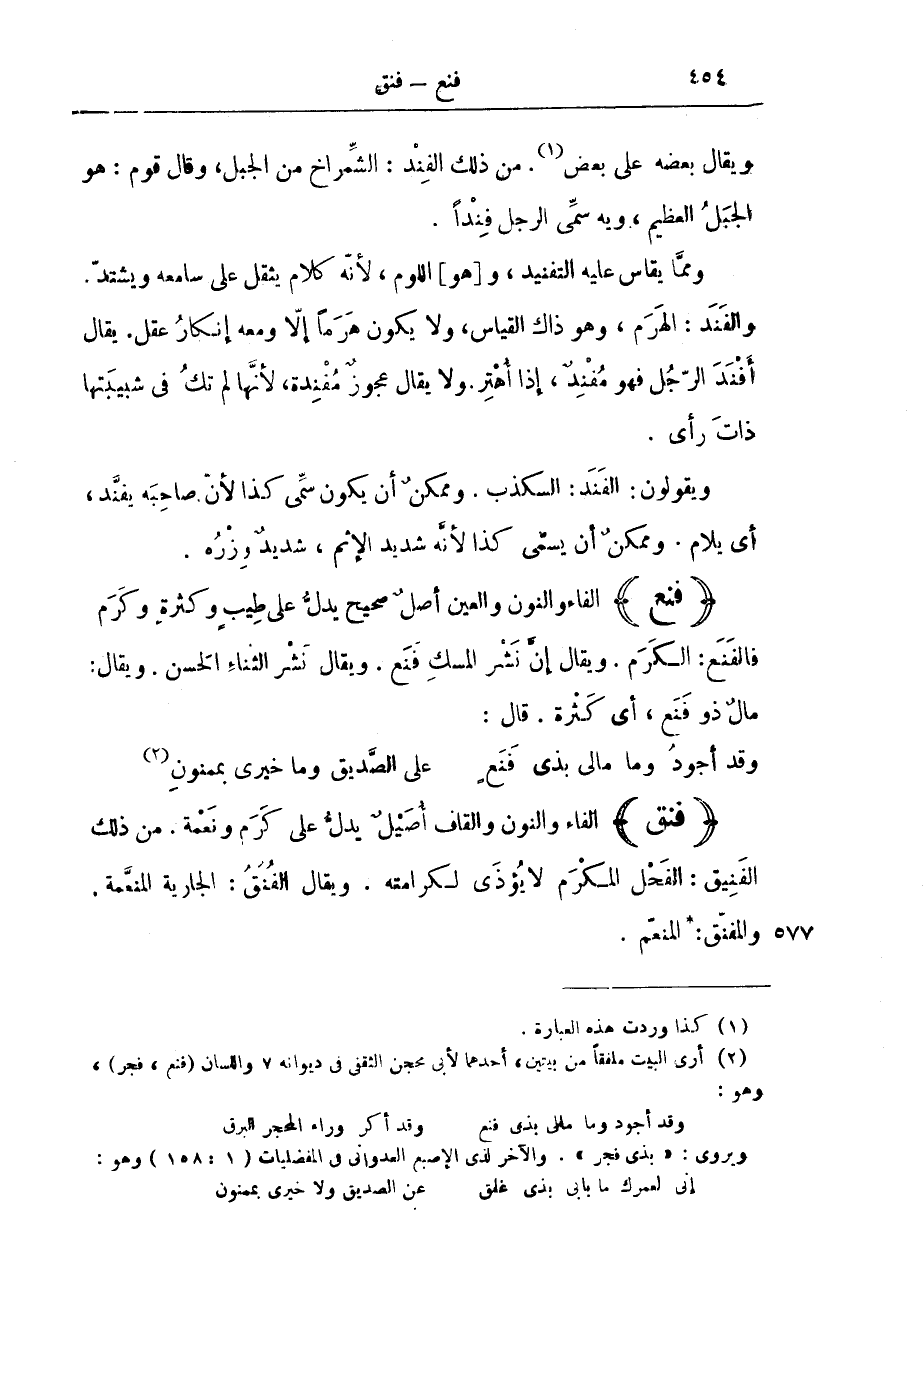 ٤٥٤ فنع — فنق
ويقال بعضه على بعض(١). من ذلك الفِنْد : الشِّمراخ من الجبل، وقال قوم : هو
الجبَلُ العظيم ، وبه سمِّى الرجل فِنْداً .
وممَّا يقاس عليه التفنيد ، و [هو] اللوم ، لأنّه كلام يثقل على سامعه ويشتدّ.
والفَنَد : الهَرَم ، وهو ذاك القياس، ولا يكون هَرَماً إلّا ومعه إنكارُ عقل. يقال
أَفْنَدَ الرّجُل فهو مُفْنِدٌ ، إذا أُهْتِر. ولا يقال عجوزٌ مُفْنِدة، لأنَّها لم تكُ فى شبيبَتها
ذاتَ رأى .
ويقولون: الفَنَد: الكذب . وممكنٌ أن يكون سمِّى كذا لأنّ صاحِبَه يفنَّد ،
أى يلام . وممكنٌ أن يسمّى كذا لأنَّه شديد الإثم ، شديدٌ وِزْرُه .
﴿ فنع ﴾ الفاء والنون والعين أصلٌ صحيح يدلُّ على طِيبٍ وكثرةٍ وكَرَم
فالفَنَع: الكَرَم . ويقال إنَّ نَشْر المسكِ فَنَع . ويقال نَشْر الثناءِ الحسن . ويقال:
مالٌ ذو فَنَعٍ ، أى كَثْرة . قال :
وقد أجودُ وما مالى بذى فَنَعٍ على الصَّديق وما خيرى بممنونِ(٢)
﴿ فنق ﴾ الفاء والنون والقاف أُصَيْلٌ يدلُّ على كَرَم ونَعْمة . من ذلك
الفَنِيق : الفَحْل المكْرَم لا يُؤذَى لكرامته . ويقال الفُنَقُ : الجارية المنعَّمة .
٥٧٧ والمفنّق: * المنعّم .
(١) كذا وردت هذه العبارة .
(٢) أرى البيت ملفقاً من بيتين، أحدهما لأبى محجن الثقفى فى ديوانه ٧ واللسان (فنع ، فجر) ،
وهو :
وقد أجود وما مالى بذى فنع وقد أكر وراء المحجر البرق
ويروى : « بذى فجر » . والآخر لذى الإصبع العدوانى فى المفضليات ( ١ : ١٥٨ ) وهو :
إنى لعمرك ما بابى بذى غلق عن الصديق ولا خيرى بممنون